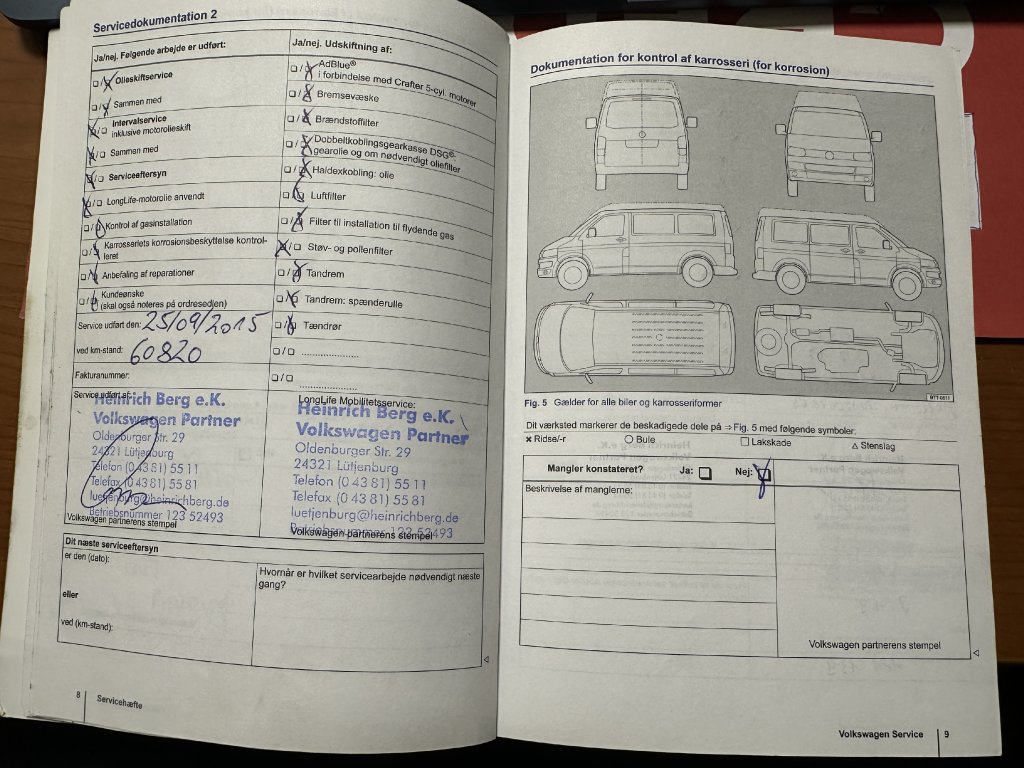 Servicedokumentation 2
Ja/nej. Følgende arbejde er udført:
Olieskiftservice
Sammen med
Intervalservice
inklusive motorolieskift
Sammen med
Serviceeftersyn
LongLife-motorolie anvendt
Kontrol af gasinstallation
Karrosseriets korrosionsbeskyttelse kontrol-
leret
Anbefaling af reparationer
Kundeønske
(skal også noteres på ordresedlen)
Service udført den: 25/09/2015
ved km-stand: 60820
Fakturanummer:
Service udført af:
Heinrich Berg e.K.
Volkswagen Partner
Oldenburger Str. 29
24321 Lütjenburg
Telefon (0 43 81) 55 11
Telefax (0 43 81) 55 81
luetjenburg@heinrichberg.de
Betriebsnummer 123 52493
Volkswagen partnerens stempel
Ja/nej. Udskiftning af:
AdBlue®
i forbindelse med Crafter 5-cyl. motorer
Bremsevæske
Brændstoffilter
Dobbeltkoblingsgearkasse DSG®-
gearolie og om nødvendigt oliefilter
Haldexkobling: olie
Luftfilter
Filter til installation til flydende gas
Støv- og pollenfilter
Tandrem
Tandrem: spænderulle
Tændrør
LongLife Mobilitetsservice:
Heinrich Berg e.K.
Volkswagen Partner
Oldenburger Str. 29
24321 Lütjenburg
Telefon (0 43 81) 55 11
Telefax (0 43 81) 55 81
luetjenburg@heinrichberg.de
Betriebsnummer 123 52493
Volkswagen partnerens stempel
Dit næste serviceeftersyn
er den (dato):
eller
ved (km-stand):
Hvornår er hvilket servicearbejde nødvendigt næste
gang?
8 Servicehæfte
Dokumentation for kontrol af karrosseri (for korrosion)
Fig. 5 Gælder for alle biler og karrosseriformer
Dit værksted markerer de beskadigede dele på ⇒ Fig. 5 med følgende symboler:
× Ridse/-r ○ Bule □ Lakskade △ Stenslag
Mangler konstateret? Ja: Nej:
Beskrivelse af manglerne:
Volkswagen partnerens stempel
Volkswagen Service 9